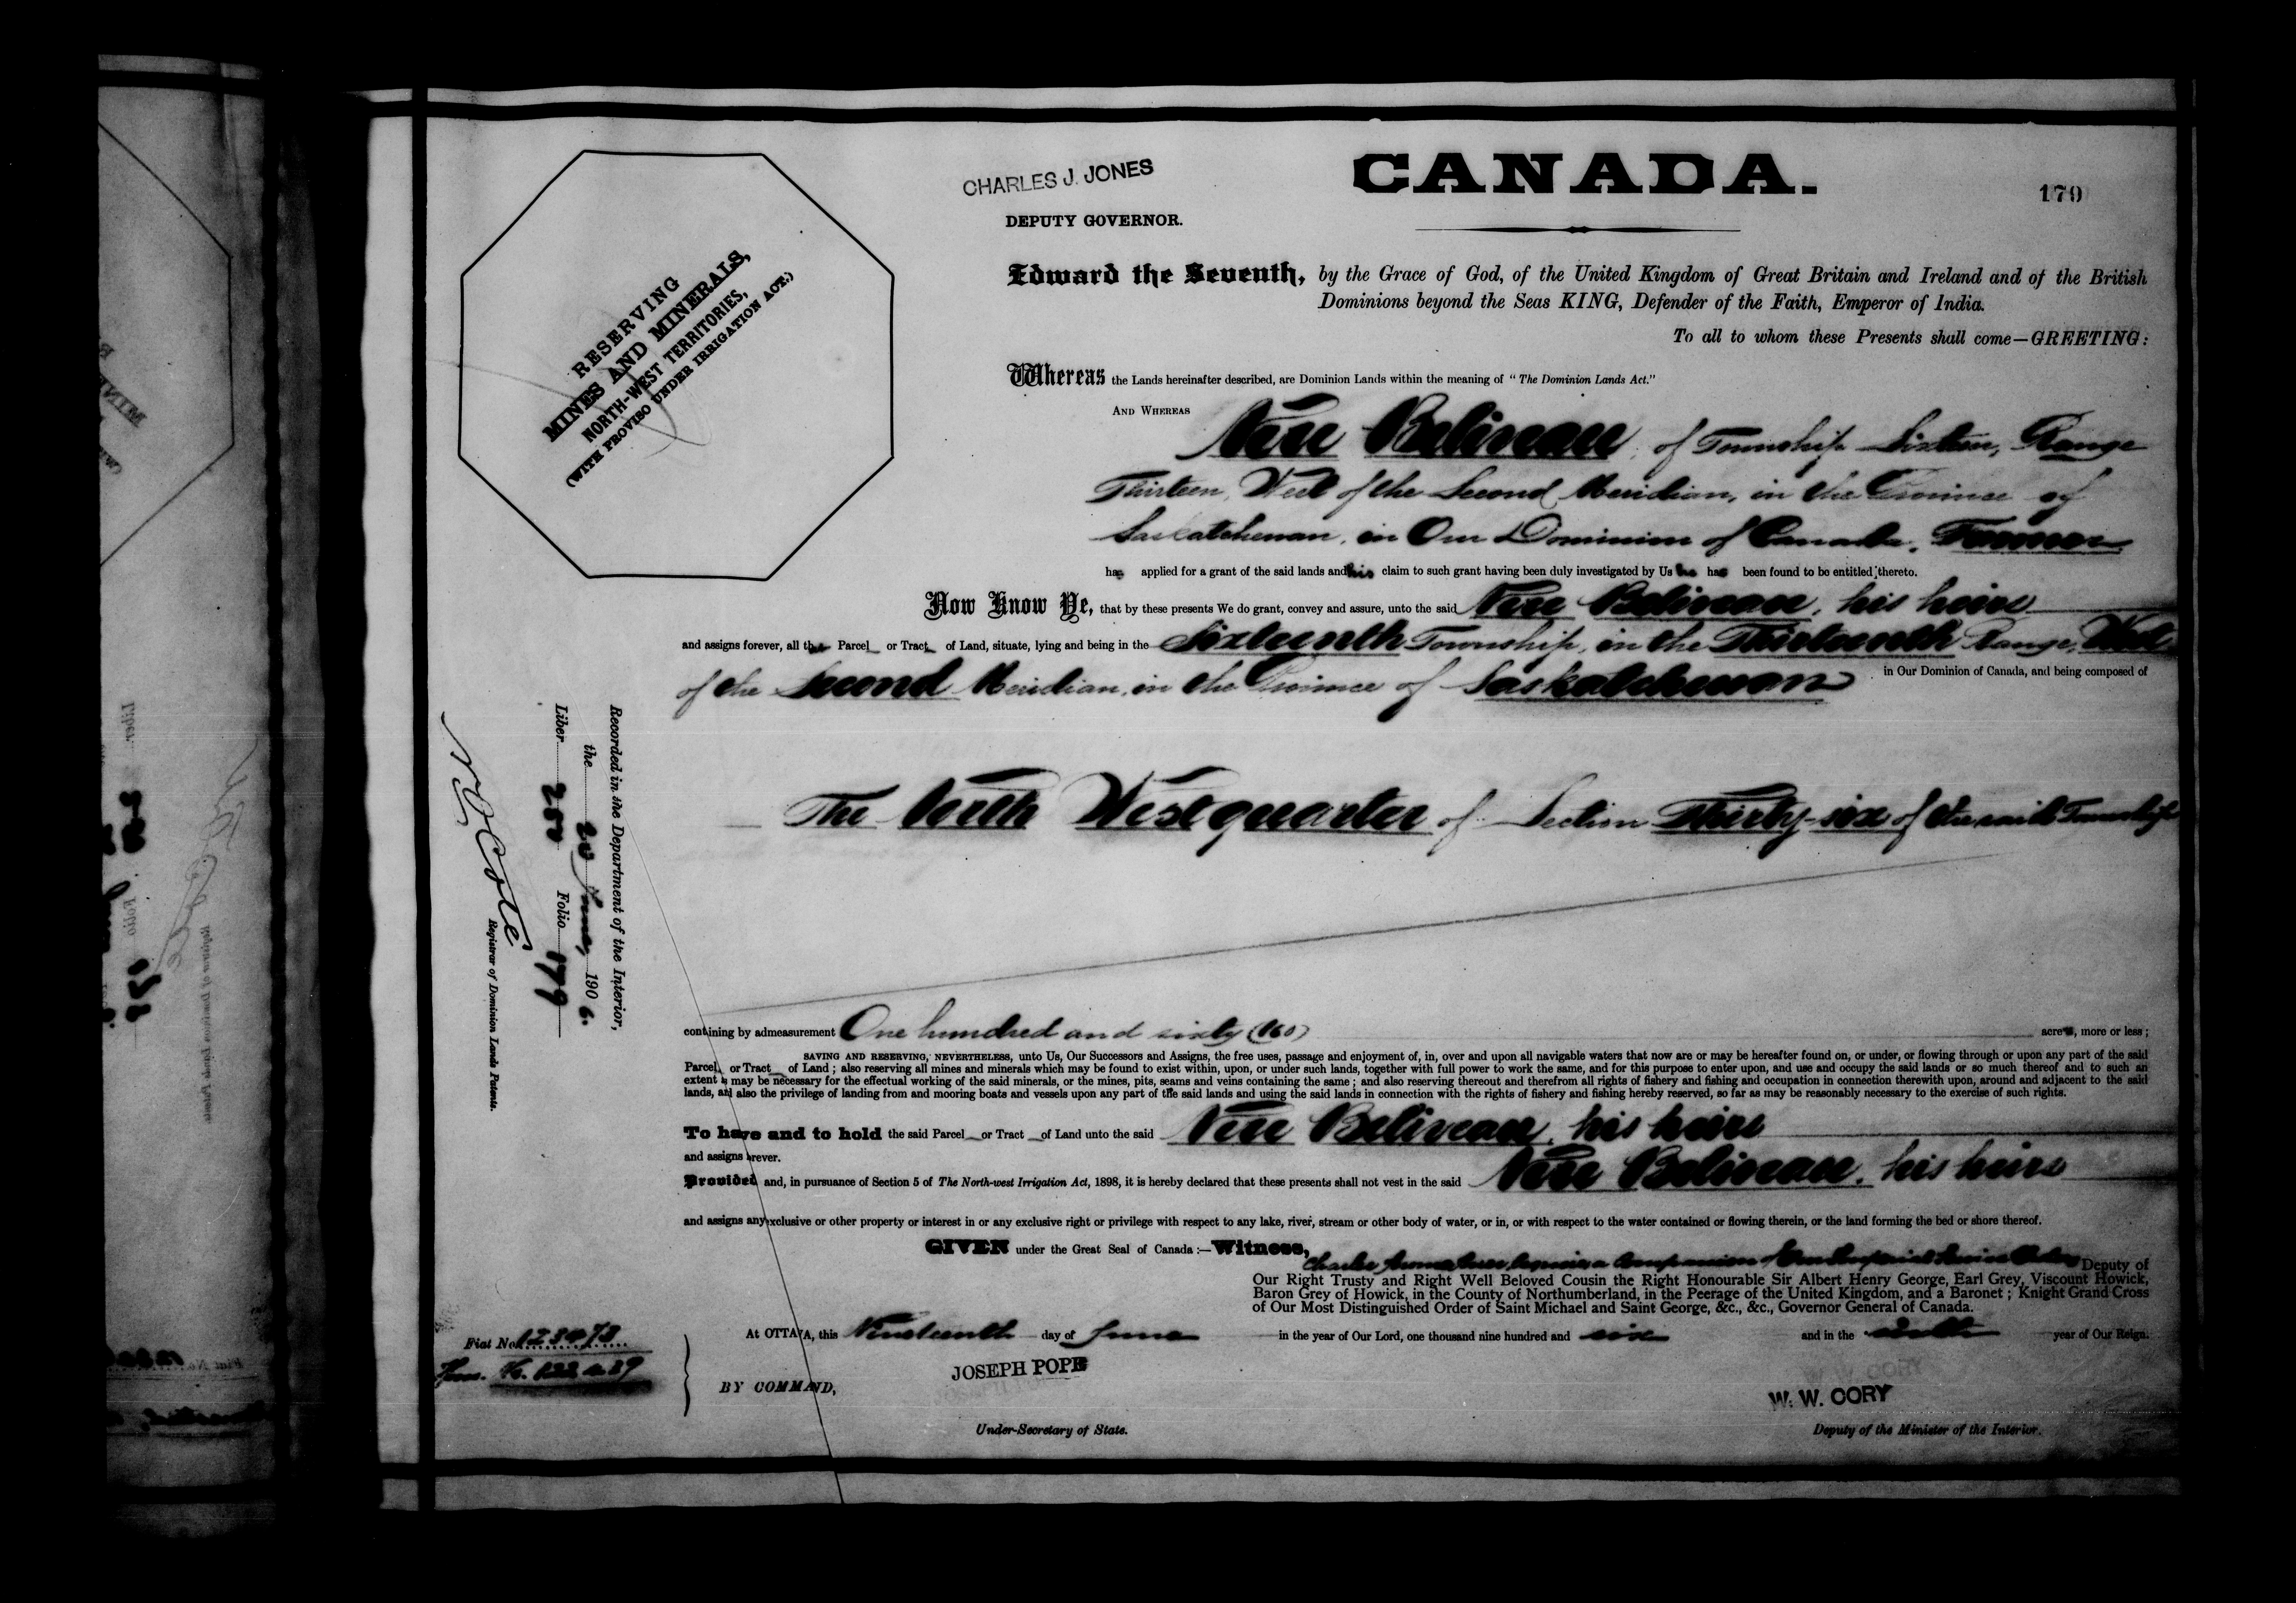 CHARLES J. JONES
CANADA.
179
DEPUTY GOVERNOR.
RESERVING
MINES AND MINERALS,
NORTH-WEST TERRITORIES,
(WITH PROVISO UNDER IRRIGATION ACT.)
Edward the Seventh, by the Grace of God, of the United Kingdom of Great Britain and Ireland and of the British
Dominions beyond the Seas KING, Defender of the Faith, Emperor of India.
To all to whom these Presents shall come—GREETING:
Whereas the Lands hereinafter described, are Dominion Lands within the meaning of "The Dominion Lands Act."
AND WHEREAS
Beliveau, of Township Sixteen, Range
Thirteen, West of the Second Meridian, in the Province of
Saskatchewan, in Our Dominion of Canada, Farmer
has applied for a grant of the said lands and his claim to such grant having been duly investigated by Us he has been found to be entitled thereto.
Now Know Ye, that by these presents We do grant, convey and assure, unto the said Beliveau, his heirs
and assigns forever, all that Parcel or Tract of Land, situate, lying and being in the Sixteenth Township, in the Thirteenth Range, West
of the Second Meridian, in the Province of Saskatchewan in Our Dominion of Canada, and being composed of
The North West quarter of Section Thirty-six of the said Township
Recorded in the Department of the Interior,
the 20 June, 1906.
Liber 252 Folio 179
N O Cote
Registrar of Dominion Lands Patents.
containing by admeasurement One hundred and sixty (160) acres, more or less;
SAVING AND RESERVING, NEVERTHELESS, unto Us, Our Successors and Assigns, the free uses, passage and enjoyment of, in, over and upon all navigable waters that now are or may be hereafter found on, or under, or flowing through or upon any part of the said
Parcel or Tract of Land; also reserving all mines and minerals which may be found to exist within, upon, or under such lands, together with full power to work the same, and for this purpose to enter upon, and use and occupy the said lands or so much thereof and to such an
extent as may be necessary for the effectual working of the said minerals, or the mines, pits, seams and veins containing the same; and also reserving thereout and therefrom all rights of fishery and fishing and occupation in connection therewith upon, around and adjacent to the said
lands, and also the privilege of landing from and mooring boats and vessels upon any part of the said lands and using the said lands in connection with the rights of fishery and fishing hereby reserved, so far as may be reasonably necessary to the exercise of such rights.
To have and to hold the said Parcel or Tract of Land unto the said Beliveau, his heirs
and assigns forever.
Provided and, in pursuance of Section 5 of The North-west Irrigation Act, 1898, it is hereby declared that these presents shall not vest in the said Beliveau, his heirs
and assigns any exclusive or other property or interest in or any exclusive right or privilege with respect to any lake, river, stream or other body of water, or in, or with respect to the water contained or flowing therein, or the land forming the bed or shore thereof.
GIVEN under the Great Seal of Canada:—Witness, Charles Jones, Esquire, a Companion of Our Imperial Service Order, Deputy of
Our Right Trusty and Right Well Beloved Cousin the Right Honourable Sir Albert Henry George, Earl Grey, Viscount Howick,
Baron Grey of Howick, in the County of Northumberland, in the Peerage of the United Kingdom, and a Baronet; Knight Grand Cross
of Our Most Distinguished Order of Saint Michael and Saint George, &c., &c., Governor General of Canada.
At OTTAWA, this Nineteenth day of June in the year of Our Lord, one thousand nine hundred and six and in the sixth year of Our Reign.
Fiat No. 123473
BY COMMAND,
JOSEPH POPE
Under-Secretary of State.
W. W. CORY
Deputy of the Minister of the Interior.